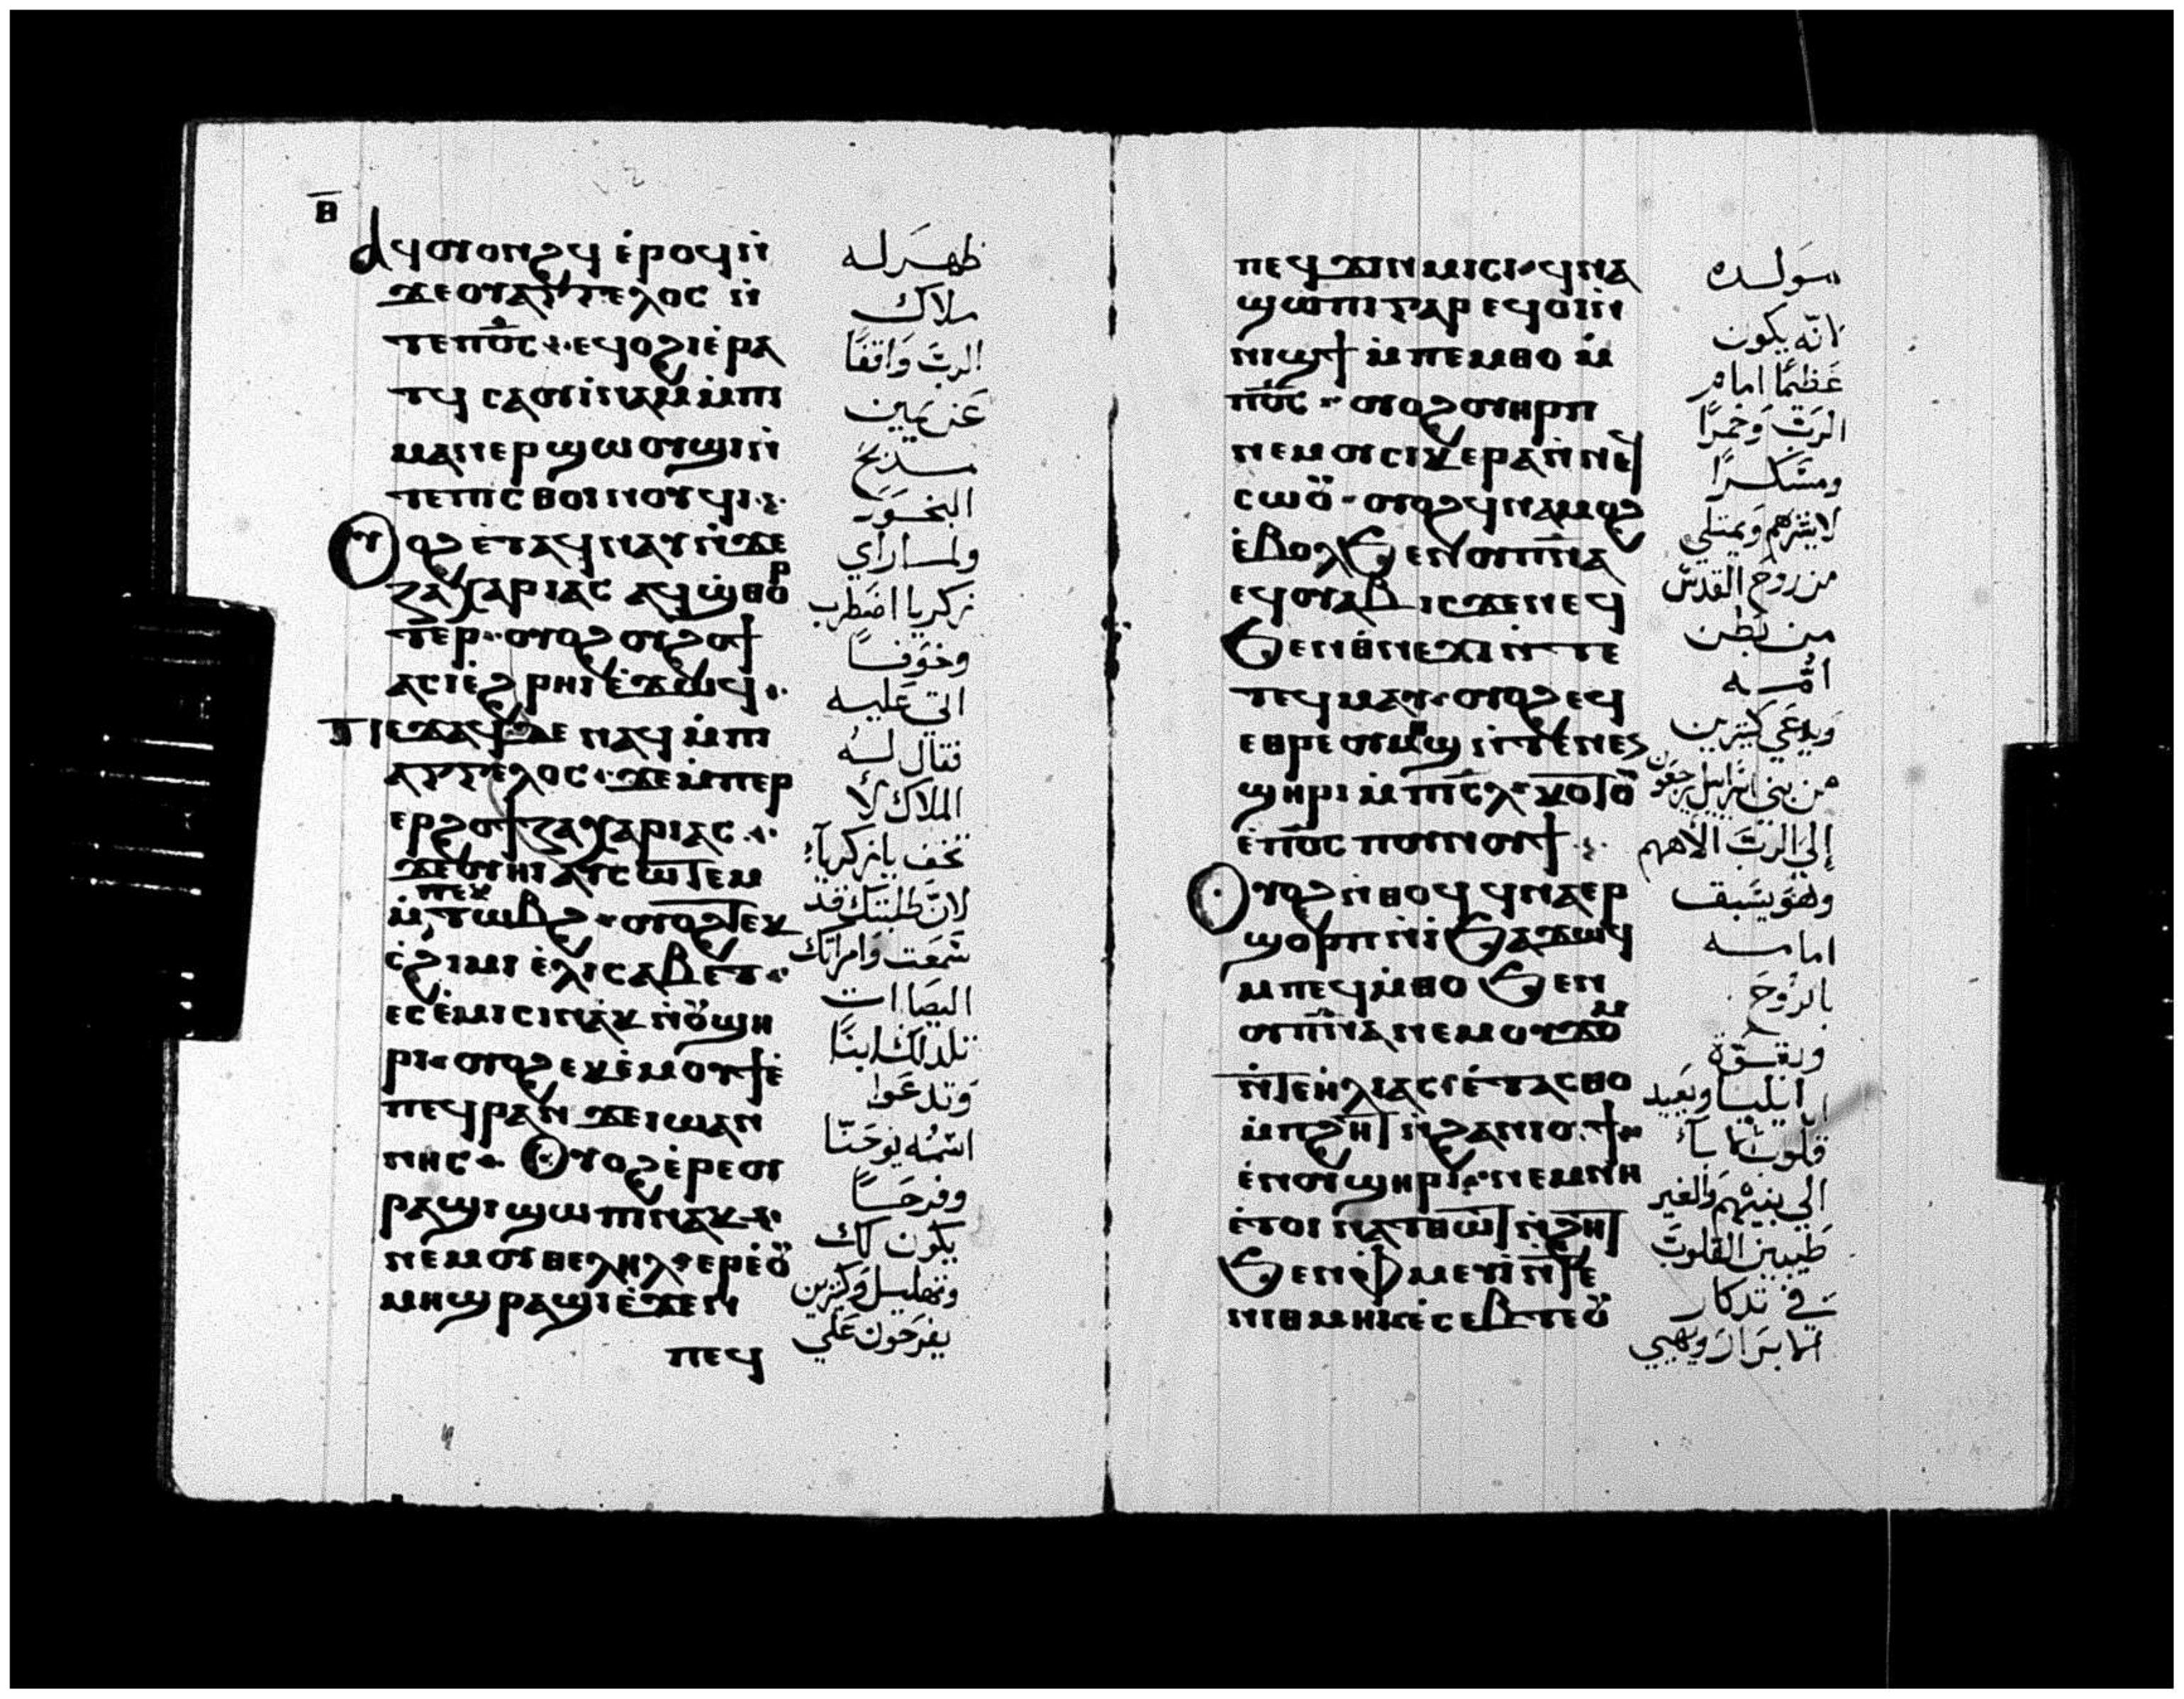 ⲑ̅
ⲁϥⲟⲩⲟⲛϩϥ ⲉ̀ⲣⲟϥ ⲛ̀
ϫⲉⲟⲩⲁⲅⲅⲉⲗⲟⲥ ⲛ̀
ⲧⲉⲡⲟ̅ⲥ̅ ⲉϥⲟϩⲓ ⲉ̀ⲣⲁ
ⲧϥ ⲥⲁⲟⲩⲓ̀ⲛⲁⲙ ⲙ̀ⲡⲓ
ⲙⲁⲛⲉⲣϣⲱⲟⲩϣⲓ ⲛ̀
ⲧⲉⲡⲓⲥⲑⲟⲓⲛⲟⲩϥⲓ
ⲟⲩⲟϩ ⲉ̀ⲧⲁϥⲛⲁⲩ ⲛ̀ϫⲉ
ⲍⲁⲭⲁⲣⲓⲁⲥ ⲁϥϣ̀ⲑⲟⲣ
ⲧⲉⲣ ⲟⲩⲟϩ ⲟⲩϩⲟϯ
ⲁⲥⲓ̀ ⲉ̀ϩⲣⲏⲓ ⲉ̀ϫⲱϥ
ⲡⲉϫⲁϥ ⲇⲉ ⲛⲁϥ ⲙ̀ⲡⲓ
ⲁⲅⲅⲉⲗⲟⲥ ϫⲉ ⲙ̀ⲡⲉⲣ
ⲉⲣϩⲟϯ ⲍⲁⲭⲁⲣⲓⲁⲥ
ϫⲉ ⲟⲩⲏⲓ ⲁⲩⲥⲱⲧⲉⲙ
ⲙ̀ⲡⲉⲕⲧⲱⲃϩ ⲟⲩⲟϩ ⲧⲉⲕ
ⲥ̀ϩⲓⲙⲓ ⲉ̀ⲗⲓⲥⲁⲃⲉⲧ
ⲉⲥⲉ̀ⲙⲓⲥⲓ ⲛⲁⲕ ⲛ̀ⲟⲩ̈ϣⲏ
ⲣⲓ ⲟⲩⲟϩ ⲉⲕⲉ̀ⲙⲟⲩϯ ⲉ̀
ⲡⲉϥⲣⲁⲛ ϫⲉ ⲓⲱⲁⲛ
ⲛⲏⲥ ⲟⲩⲟϩ ⲉ̀ⲣⲉ ⲟⲩ
ⲣⲁϣⲓ ϣⲱⲡⲓ ⲛⲁⲕ
ⲛⲉⲙ ⲟⲩⲑⲉⲗⲏⲗ ⲉⲣⲉ̀ ⲟⲩ̈
ⲙⲏϣ ⲣⲁϣⲓ ⲉ̀ϫⲉⲛ
ⲡⲉϥ
ظهر له
ملاك
الرب واقفًا
عن يمين
مدبح
البخور
ولما راي
زكريا اضطرب
وخوفًا
اتي عليه
فقال له
الملاك لا
تخف يا زكرياء
لان طلبتك قد
سمعت وامراتك
اليصابات
تلد لك ابنًا
وتدعوا
اسمه يوحنا
وفرحًا
يكون لك
وتهليل وكثيرين
يفرحون علي
ⲡⲉϥϫⲓⲛⲙⲓⲥⲓ ϥⲛⲁ
ϣⲱⲡⲓ ⲅⲁⲣ ⲉϥⲟⲓ ⲛ̀
ⲛⲓϣϯ ⲙ̀ⲡⲉⲙⲑⲟ ⲙ̀
ⲡⲟ̅ⲥ̅ ⲟⲩⲟϩ ⲟⲩⲏⲣⲡ
ⲛⲉⲙ ⲟⲩⲥⲓⲕⲉⲣⲁ ⲛ̀ⲛⲉϥ
ⲥⲱⲟⲩ̈ ⲟⲩⲟϩ ϥⲛⲁⲙⲟϩ
ⲉ̀ⲃⲟⲗ ϧⲉⲛ ⲟⲩⲡ̅ⲛ̅ⲁ̅
ⲉϥⲟⲩⲁⲃ ⲓⲥϫⲉⲛ ⲉϥ
ϧⲉⲛ ⲑ̀ⲛⲉϫⲓ ⲛ̀ⲧⲉ
ⲧⲉϥⲙⲁⲩ ⲟⲩⲟϩ ⲉϥ
ⲉⲑⲣⲉ ⲟⲩⲙⲏϣ ⲛ̀ⲧⲉ ⲛⲉⲛ
ϣⲏⲣⲓ ⲙ̀ⲡⲓ̅ⲥ̅ⲗ̅ ⲕⲟⲧⲟⲩ̈
ⲉ̀ⲡⲟ̅ⲥ̅ ⲡⲟⲩⲛⲟⲩϯ
ⲟⲩⲟϩ ⲛ̀ⲑⲟϥ ϥⲛⲁⲉⲣ
ϣⲟⲣⲡ ⲛ̀ⲓ̀ ϧⲁϫⲱϥ
ⲙⲡⲉϥⲙ̀ⲑⲟ ϧⲉⲛ
ⲟⲩⲡ̅ⲛ̅ⲁ̅ ⲛⲉⲙ ⲟⲩϫⲟⲙ
ⲛ̀ⲧⲉ ⲏ̀ⲗⲓⲁⲥ ⲉ̀ⲧⲁⲥⲑⲟ
ⲙ̀ⲡϩⲏⲧ ⲛ̀ϩⲁⲛⲓⲟϯ
ⲉ̀ⲛⲟⲩϣⲏⲣⲓ ⲛⲉⲙ ⲛⲏ
ⲉ̀ⲧⲟⲓ ⲛ̀ⲁⲧⲑⲱⲧ ⲛ̀ϩⲏⲧ
ϧⲉⲛ ⲫ̀ⲙⲉⲩⲓ̀ ⲛ̀ⲧⲉ
ⲛⲓⲑⲙⲏⲓ ⲉ̀ⲥⲉⲃⲧⲉ ⲟⲩ̈
مولده
لانه يكون
عظيمًا امام
الرب وخمرًا
ومسكرًا
لا يشربهم ويمتلي
من روح القدس
من بطن
امه
ويدعي كثيرين
من بني اسراييل يرجعون
إلي الرب الاههم
وهو يسبق
امامه
بالروح
وبقوة
ايليا ويعيد
قلوب الاباء
الي بنيهم والغير
طيبين القلوب
في تدكار
الابرار ويهيي